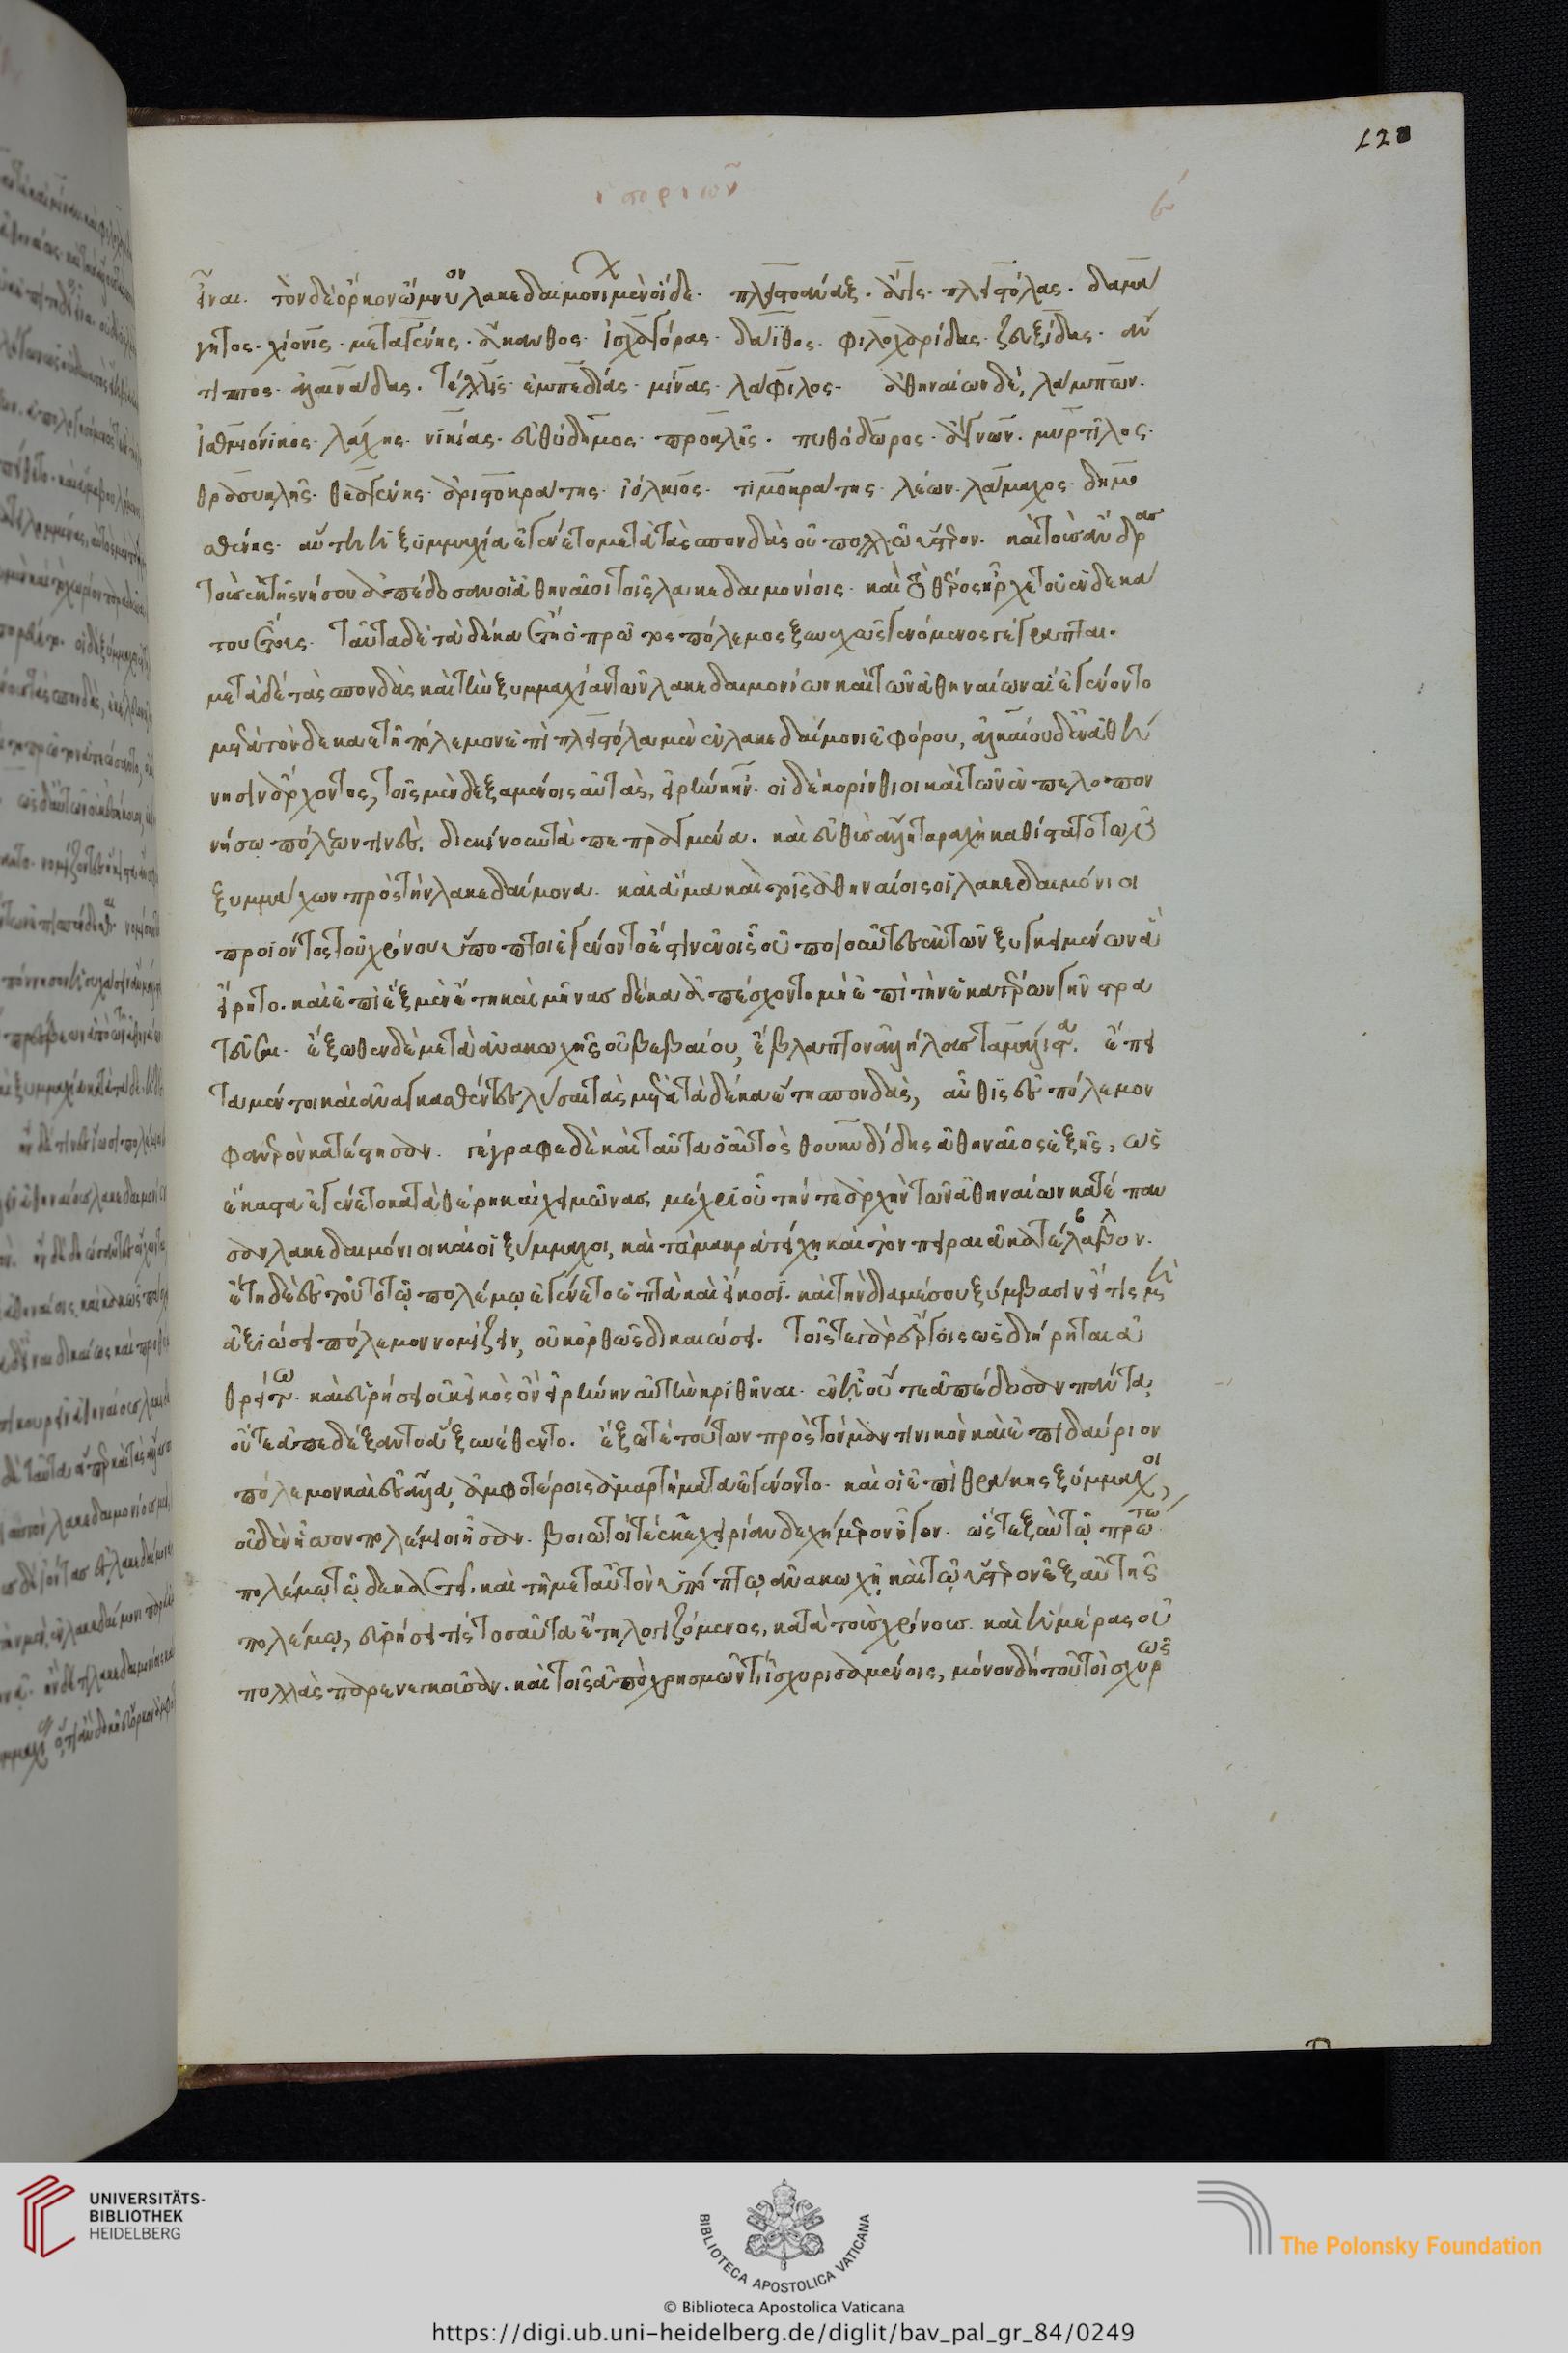 120
ἱστοριῶν
εἶναι. τὸν δὲ ὅρκον ὤμνυον λακεδαιμονίων μὲν οἵδε. πλειστοάναξ. ἆγις. πλειστόλας. δαμά
γητος. χίονις. μεταγένης. ἄκανθος. ἰσχαγόρας. δάϊθος. φιλοχαρίδας. ζευξίδας. ἄν
τιππος. ἀλκινάδας. τέλλις. ἐμπεδίας. μίνας. λάφιλος. ἀθηναίων δὲ, λάμπων.
ἰσθμιόνικος. λάχης. νικίας. εὐθύδημος. προκλῆς. πυθόδωρος. ἅγνων. μυρτίλος.
θρασυκλῆς. θεαγένης. ἀριστοκράτης. ἰώλκιος. τιμοκράτης. λέων. λάμαχος. δημο
σθένης. αὕτη ἡ ξυμμαχία ἐγένετο μετὰ τὰς σπονδὰς οὐ πολλῶ ὕστερον. καὶ τοὺς ἄνδρας
τοὺς ἐκ τῆς νήσου ἀπέδοσαν οἱ ἀθηναῖοι τοῖς λακεδαιμονίοις. καὶ τὸ θέρος ἦρχε τοῦ ἑνδεκά
του ἔτους. ταῦτα δὲ τὰ δέκα ἔτη ὁ πρῶτος πόλεμος ξυνεχῶς γενόμενος γέγραπται.
μετὰ δὲ τὰς σπονδὰς καὶ τὴν ξυμμαχίαν τῶν λακεδαιμονίων καὶ τῶν ἀθηναίων αἳ ἐγένοντο
μετὰ τὸν δεκαετῆ πόλεμον ἐπὶ πλειστόλα μὲν ἐν λακεδαίμονι ἐφόρου, ἀλκαίου δ' ἐν ἀθή
νησιν ἄρχοντος, τοῖς μὲν δεξαμένοις αὐτὰς, εἰρήνη ἦν. οἱ δὲ κορίνθιοι καὶ τῶν ἐν πελοπον
νήσω πόλεών τινες, διεκίνουν τὰ πεπραγμένα. καὶ εὐθὺς ἄλλη ταραχὴ καθίστατο τῶν
ξυμμάχων πρὸς τὴν λακεδαίμονα. καὶ ἅμα καὶ τοῖς ἀθηναίοις οἱ λακεδαιμόνιοι
προϊόντος τοῦ χρόνου ὕποπτοι ἐγένοντο ἔστιν ἐν οἷς οὐ ποιοῦντες ἐκ τῶν ξυγκειμένων ἃ
εἴρητο. καὶ ἐπὶ ἓξ μὲν ἔτη καὶ μῆνας δέκα ἀπέσχοντο μὴ ἐπὶ τὴν ἑκατέρων γῆν στρα
τεῦσαι. ἔξωθεν δὲ μετὰ ἀνακωχῆς οὐ βεβαίου, ἔβλαπτον ἀλλήλους τὰ μάλιστα. ἔπει
τα μέντοι καὶ ἀναγκασθέντες λῦσαι τὰς μετὰ τὰ δέκα ἔτη σπονδὰς, αὖθις ἐς πόλεμον
φανερὸν κατέστησαν. γέγραφε δὲ καὶ ταῦτα ὁ αὐτὸς θουκυδίδης ἀθηναῖος ἑξῆς, ὡς
ἕκαστα ἐγένετο κατὰ θέρη καὶ χειμῶνας, μέχρι οὗ τήν τε ἀρχὴν τῶν ἀθηναίων κατέπαυ
σαν λακεδαιμόνιοι καὶ οἱ ξύμμαχοι, καὶ τὰ μακρὰ τείχη καὶ τὸν πειραιᾶ κατέλαβον.
ἔτη δὲ ἐς τοῦτο τῷ πολέμῳ ἐγένετο ἑπτὰ καὶ εἴκοσι. καὶ τὴν διὰ μέσου ξύμβασιν εἴ τις μὴ
ἀξιώσει πόλεμον νομίζειν, οὐκ ὀρθῶς δικαιώσει. τοῖς τε γὰρ ἔργοις ὡς διήρηται ἀ
θρείτω. καὶ εὑρήσει οὐκ εἰκὸς ὂν εἰρήνην αὐτὴν κριθῆναι. ἐν ᾗ οὔτε ἀπέδοσαν πάντα,
οὔτε ἀπεδέξαντο ἃ ξυνέθεντο. ἔξω τε τούτων πρὸς τὸν μαντινικὸν καὶ ἐπιδαύριον
πόλεμον καὶ ἐς ἄλλα, ἀμφοτέροις ἁμαρτήματα ἐγένοντο. καὶ οἱ ἐπὶ θρᾴκης ξύμμαχοι,
οὐδὲν ἧσσον πολέμιοι ἦσαν. βοιωτοί τε ἐκεχειρίαν δεχήμερον ἦγον. ὥστε ξὺν τῷ πρώτω
πολέμῳ τῷ δεκαέτει. καὶ τῇ μετ' αὐτὸν ὑπόπτῳ ἀνακωχῇ καὶ τῷ ὕστερον ἐξ αὐτῆς
πολέμῳ, εὑρήσει τις τοσαῦτα ἔτη λογιζόμενος, κατὰ τοὺς χρόνους. καὶ ἡμέρας οὐ
πολλὰς παρενεγκούσας. καὶ τοῖς ἀπὸ χρησμῶν τι ἰσχυρισαμένοις, μόνον δὴ τοῦτο ἰσχυρῶς
UNIVERSITÄTS-
BIBLIOTHEK
HEIDELBERG
BIBLIOTECA APOSTOLICA VATICANA
The Polonsky Foundation
© Biblioteca Apostolica Vaticana
https://digi.ub.uni-heidelberg.de/diglit/bav_pal_gr_84/0249